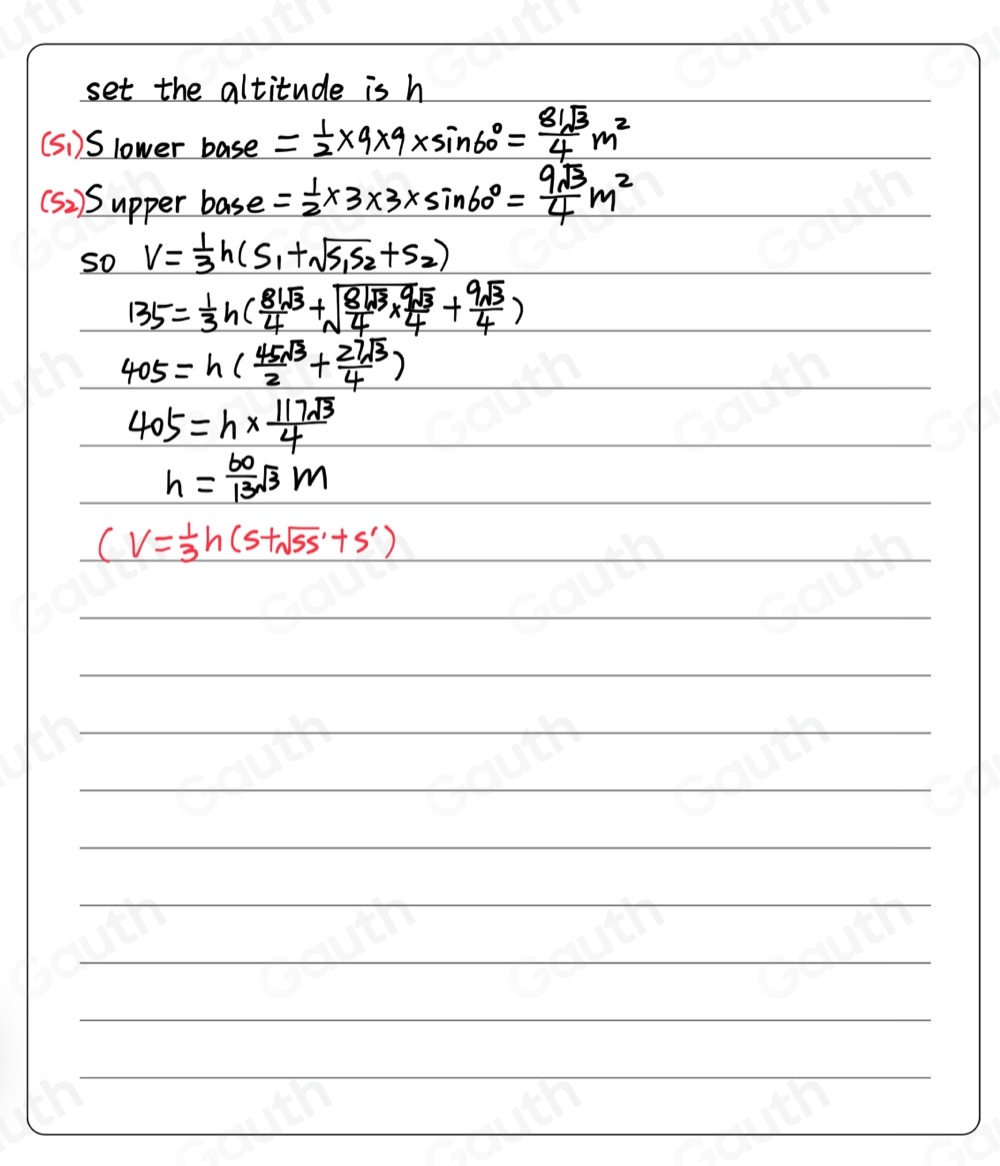 set the altitude is h
(S₁) S lower base = 1/2 × 9 × 9 × sin60° = 81√3/4 m²
(S₂) S upper base = 1/2 × 3 × 3 × sin60° = 9√3/4 m²
so V = 1/3 h (S₁ + √(S₁S₂) + S₂)
135 = 1/3 h (81√3/4 + √(81√3/4 × 9√3/4) + 9√3/4)
405 = h (45√3/2 + 27√3/4)
405 = h × 117√3/4
h = 60/13 √3 m
(V = 1/3 h (S + √(SS') + S')
Gauth